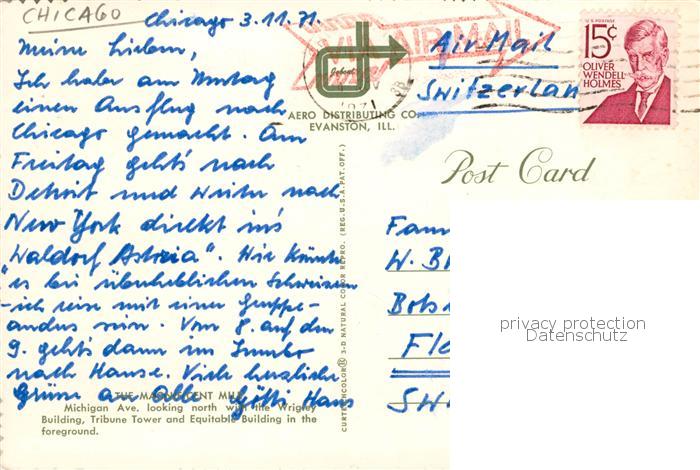 CHICAGO
Chicago 3.11.71.
Meine Lieben,
Ich habe am Montag
einen Ausflug nach
Chicago gemacht. Am
Freitag geht's nach
Detroit und weiter nach
New York direkt in's
"Waldorf Astoria". Wie könnte
es bei überheblichen Schweizern
-ich reise mit einer Gruppe-
anders sein. Vom 8. auf den
9. geht's dann im Jumbo
nach Hause. Viele herzliche
Grüsse an Alle Götti Hans
THE MAGNIFICENT MILE
Michigan Ave. looking north with the Wrigley
Building, Tribune Tower and Equitable Building in the
foreground.
AERO DISTRIBUTING CO.
EVANSTON, ILL.
CURTEICHCOLOR® 3-D NATURAL COLOR REPRO. (REG. U.S.A. PAT. OFF.)
VIA AIR MAIL
1971
Air Mail
Switzerlan
U.S. POSTAGE
15¢
OLIVER
WENDELL
HOLMES
Post Card
Fam
W. B
Bots
Fl
SW
privacy protection
Datenschutz